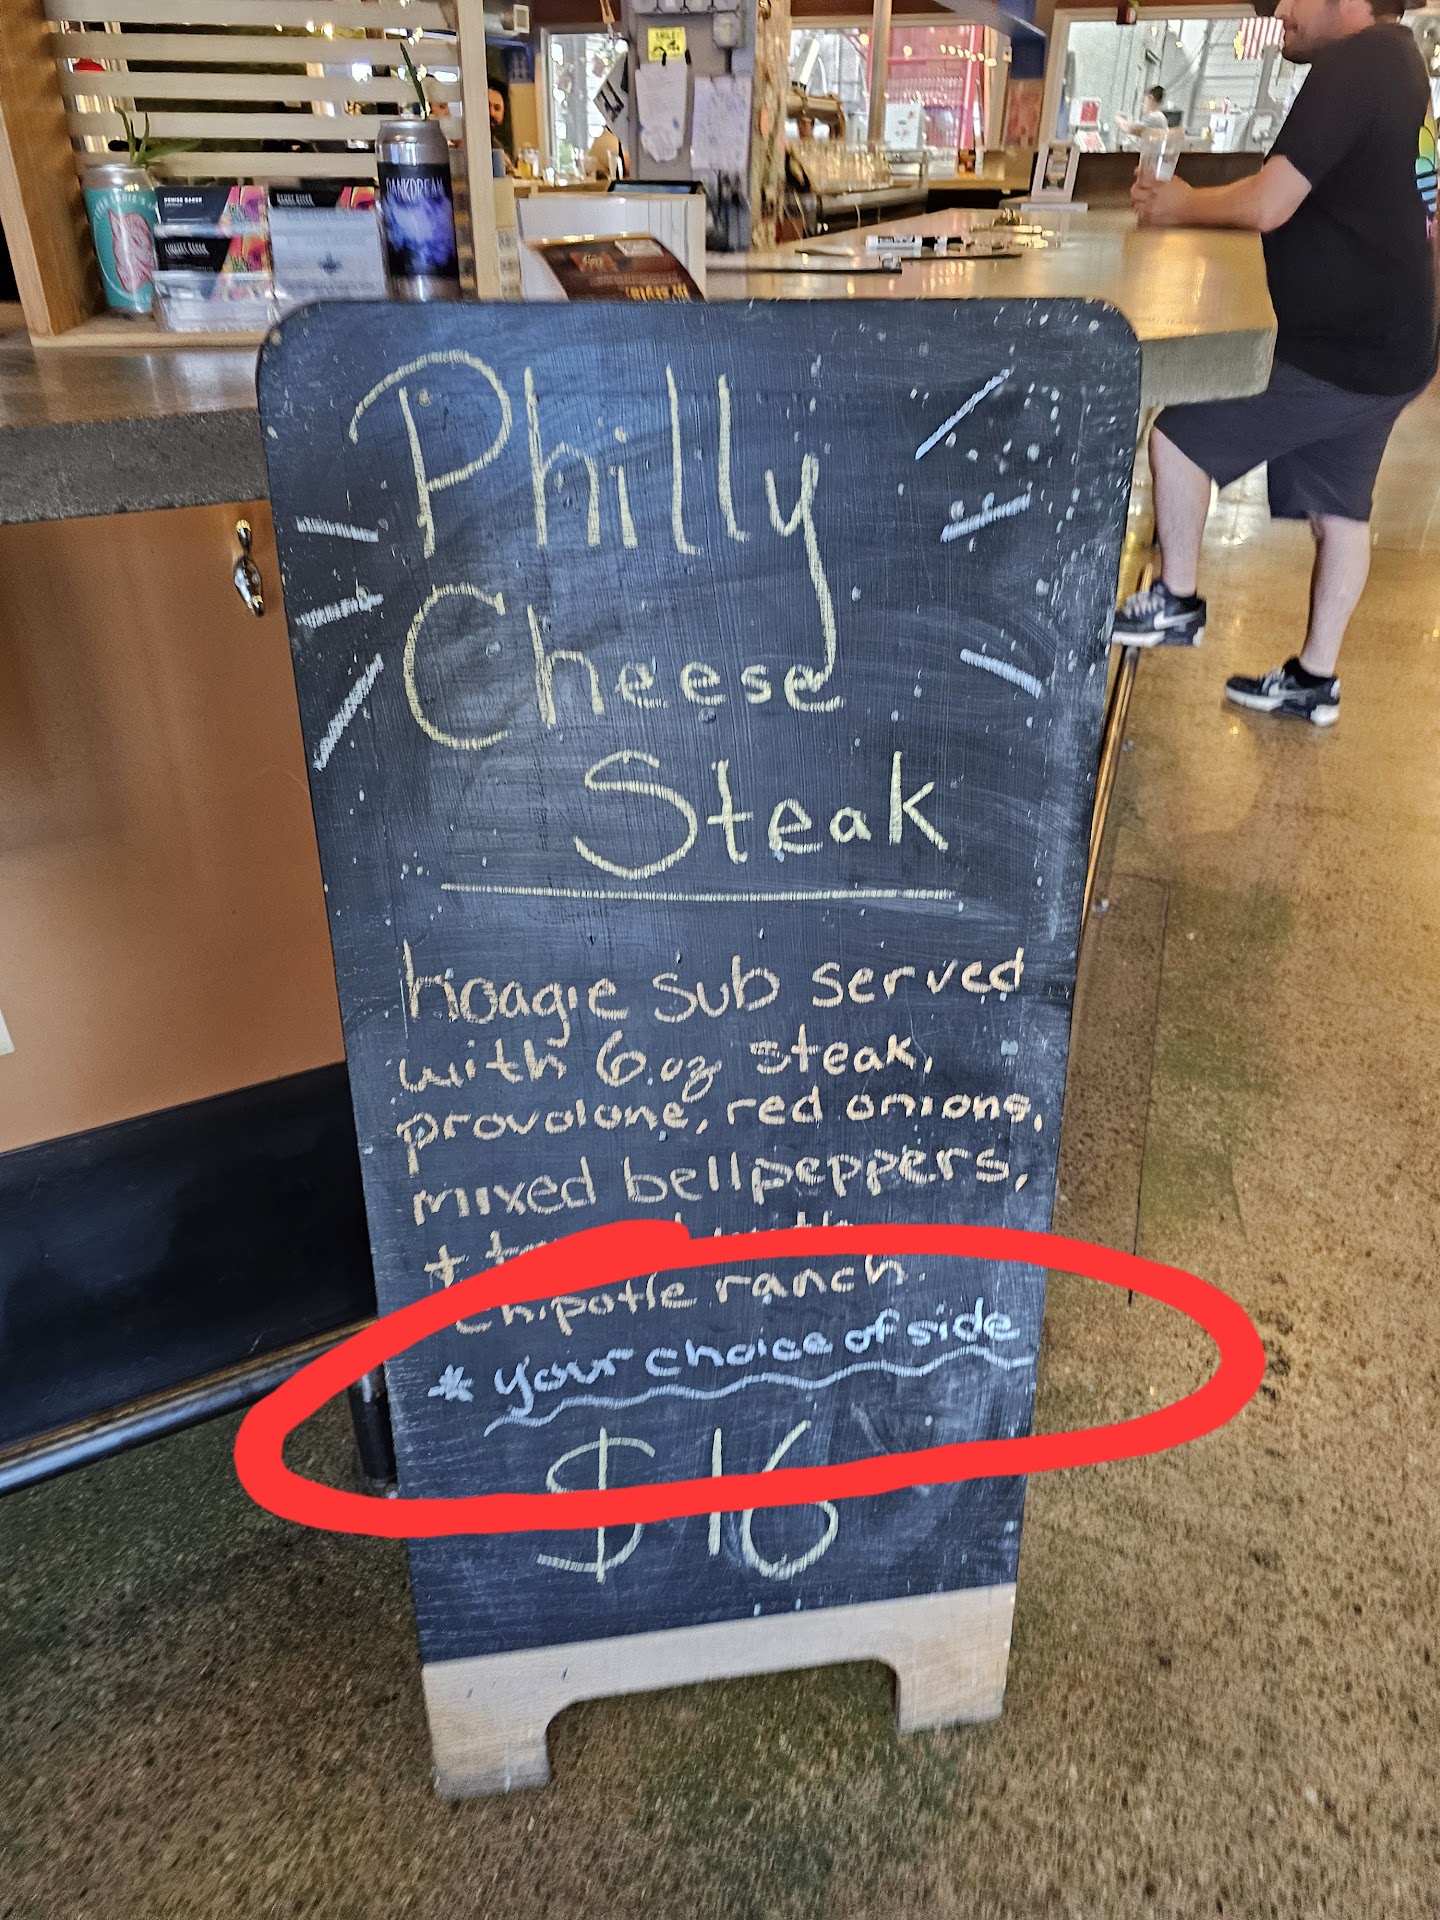 DANKDREAM
Philly
Cheese
Steak
hoagie sub served
with 6.oz steak,
provolone, red onions,
mixed bellpeppers,
+
chipotle ranch.
* your choice of side
$16